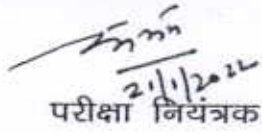 21/1/2022
परीक्षा नियंत्रक